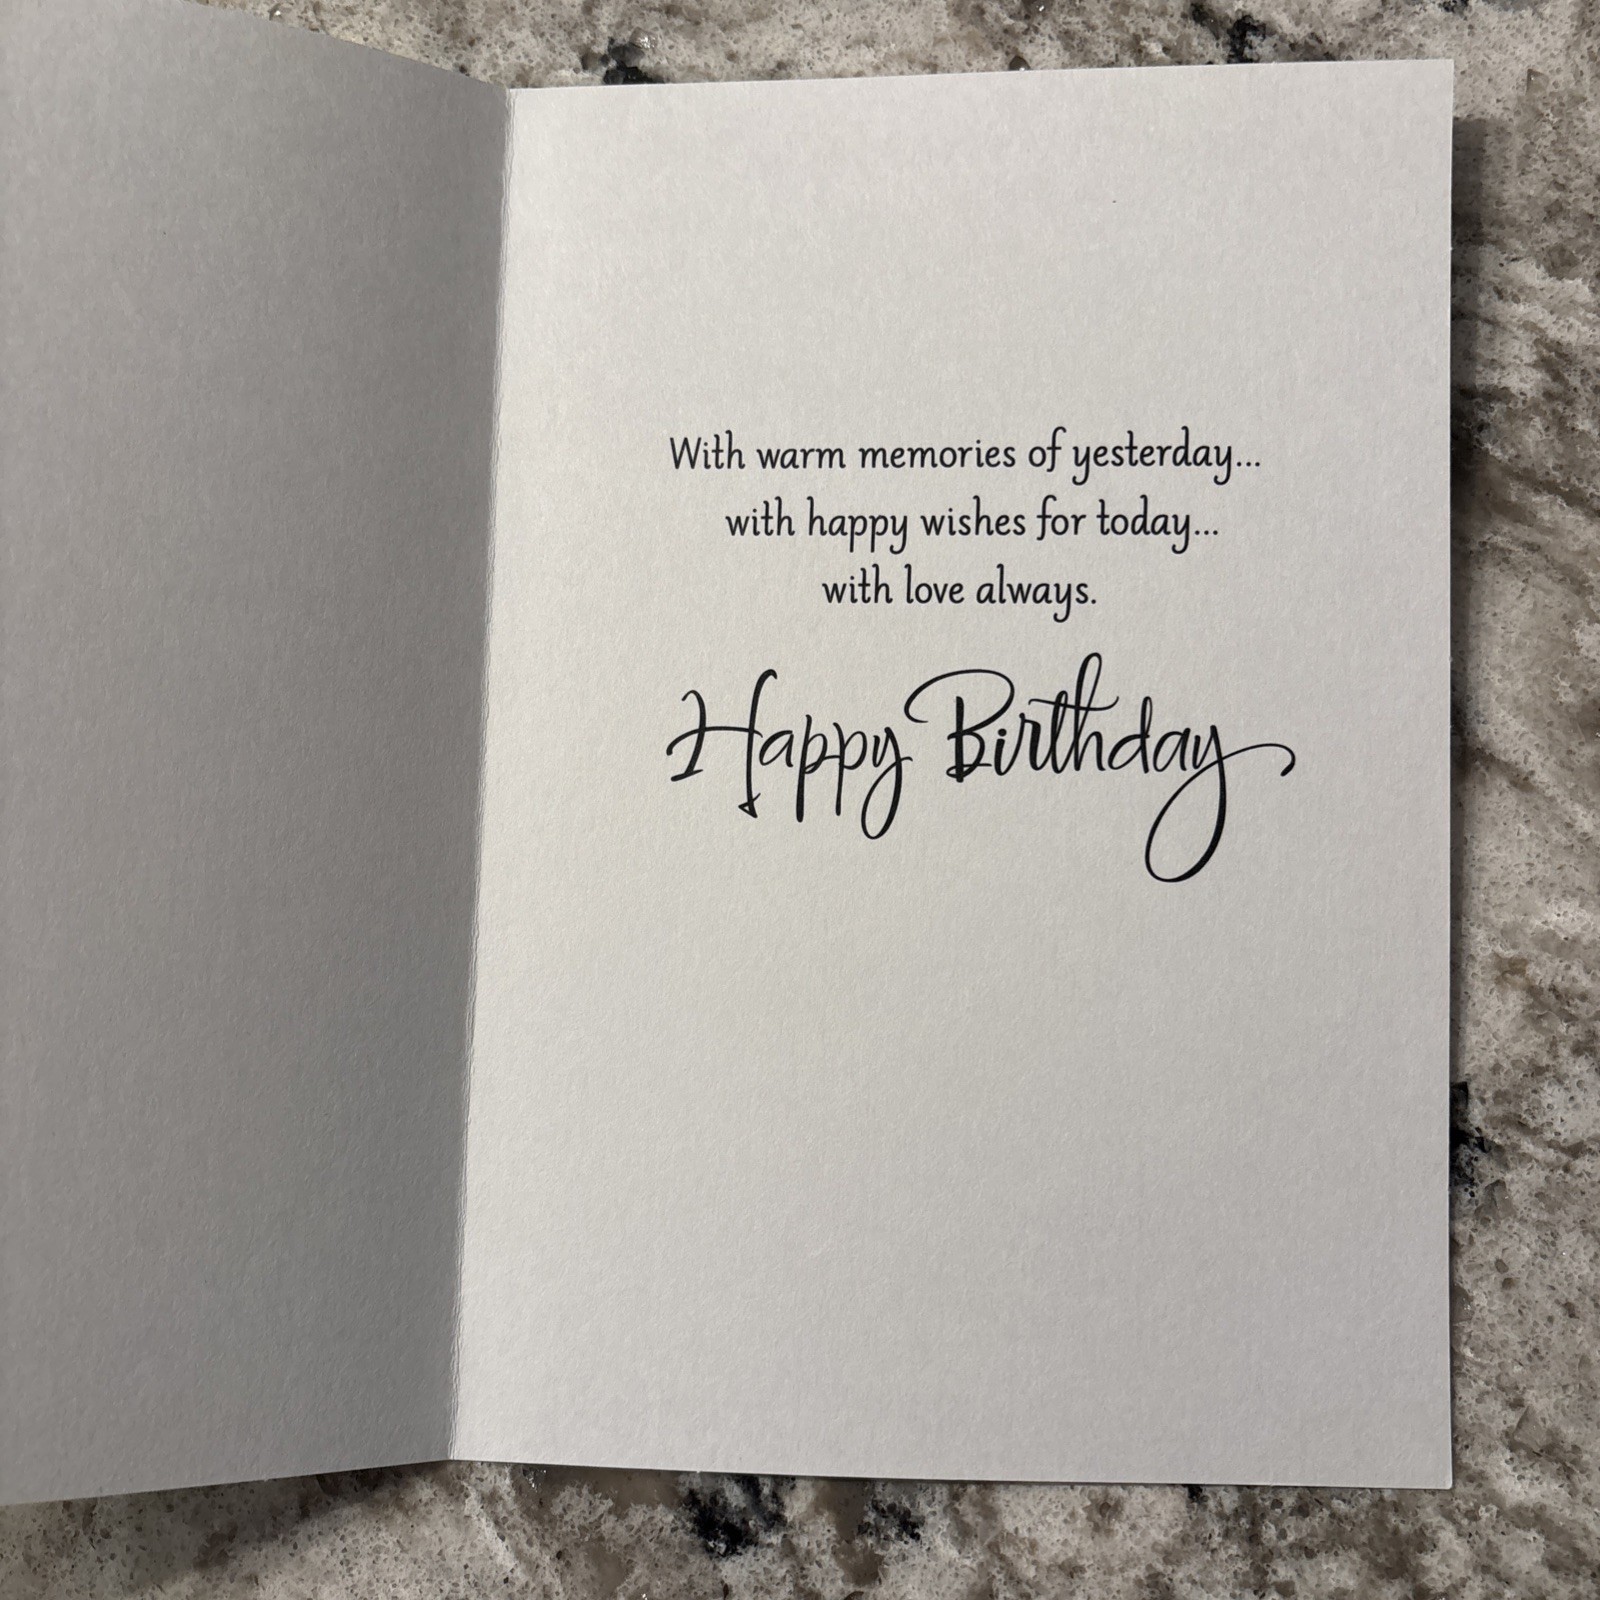 With warm memories of yesterday...
with happy wishes for today...
with love always.
Happy Birthday